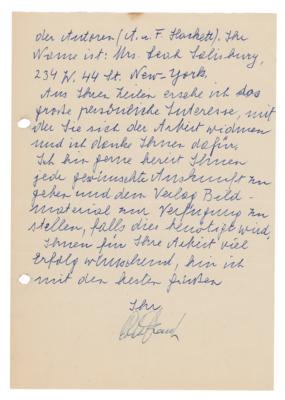 der Autoren (A. u. F. Hackett). Ihr
Name ist: Mrs. Leah Salisbury,
234 W. 44 St. New-York.
Aus Ihren Zeilen ersehe ich das
große persönliche Interesse, mit
der Sie sich der Arbeit widmen
und ich danke Ihnen dafür.
Ich bin gerne bereit Ihnen
jede gewünschte Auskunft zu
geben und dem Verlag Bild-
material zur Verfügung zu
stellen, falls dies benötigt wird.
Ihnen für Ihre Arbeit viel
Erfolg wünschend, bin ich
mit den besten Grüßen
Ihr